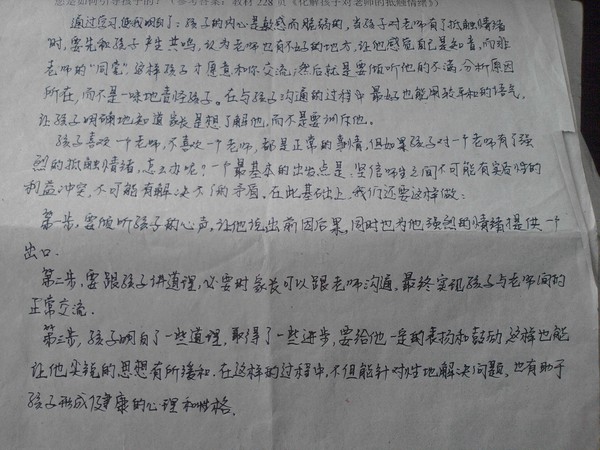 您是如何引导孩子的？（参考答案：教材 228 页《化解孩子对老师的抵触情绪》）
通过学习使我明白了：孩子的内心是敏感而脆弱的，当孩子对老师有了抵触情绪
时，要先和孩子产生共鸣，认为老师也有不好的地方，让他感觉自己是知音，而非
老师的“同党”，这样孩子才愿意和你交流，然后就是要倾听他的不满，分析原因
所在，而不是一味地责怪孩子。在与孩子沟通的过程中最好也能用放平和的语气，
让孩子明确地知道家长是想了解他，而不是要训斥他。
孩子喜欢一个老师，不喜欢一个老师，都是正常的事情，但如果孩子对一个老师有了强
烈的抵触情绪，怎么办呢？一个最基本的出发点是：坚信师生之间不可能有实质性的
利益冲突，不可能有解决不了的矛盾。在此基础上，我们还要这样做：
第一步，要倾听孩子的心声，让他说出前因后果，同时也为他强烈的情绪提供一个
出口.
第二步，要跟孩子讲道理，必要时家长可以跟老师沟通，最终实现孩子与老师间的
正常交流.
第三步，孩子明白了一些道理，取得了一些进步，要给他一定的表扬和鼓励，这样也能
让他尖锐的思想有所缓和.在这样的过程中，不但能针对性地解决问题，也有助于
孩子形成健康的心理和性格.